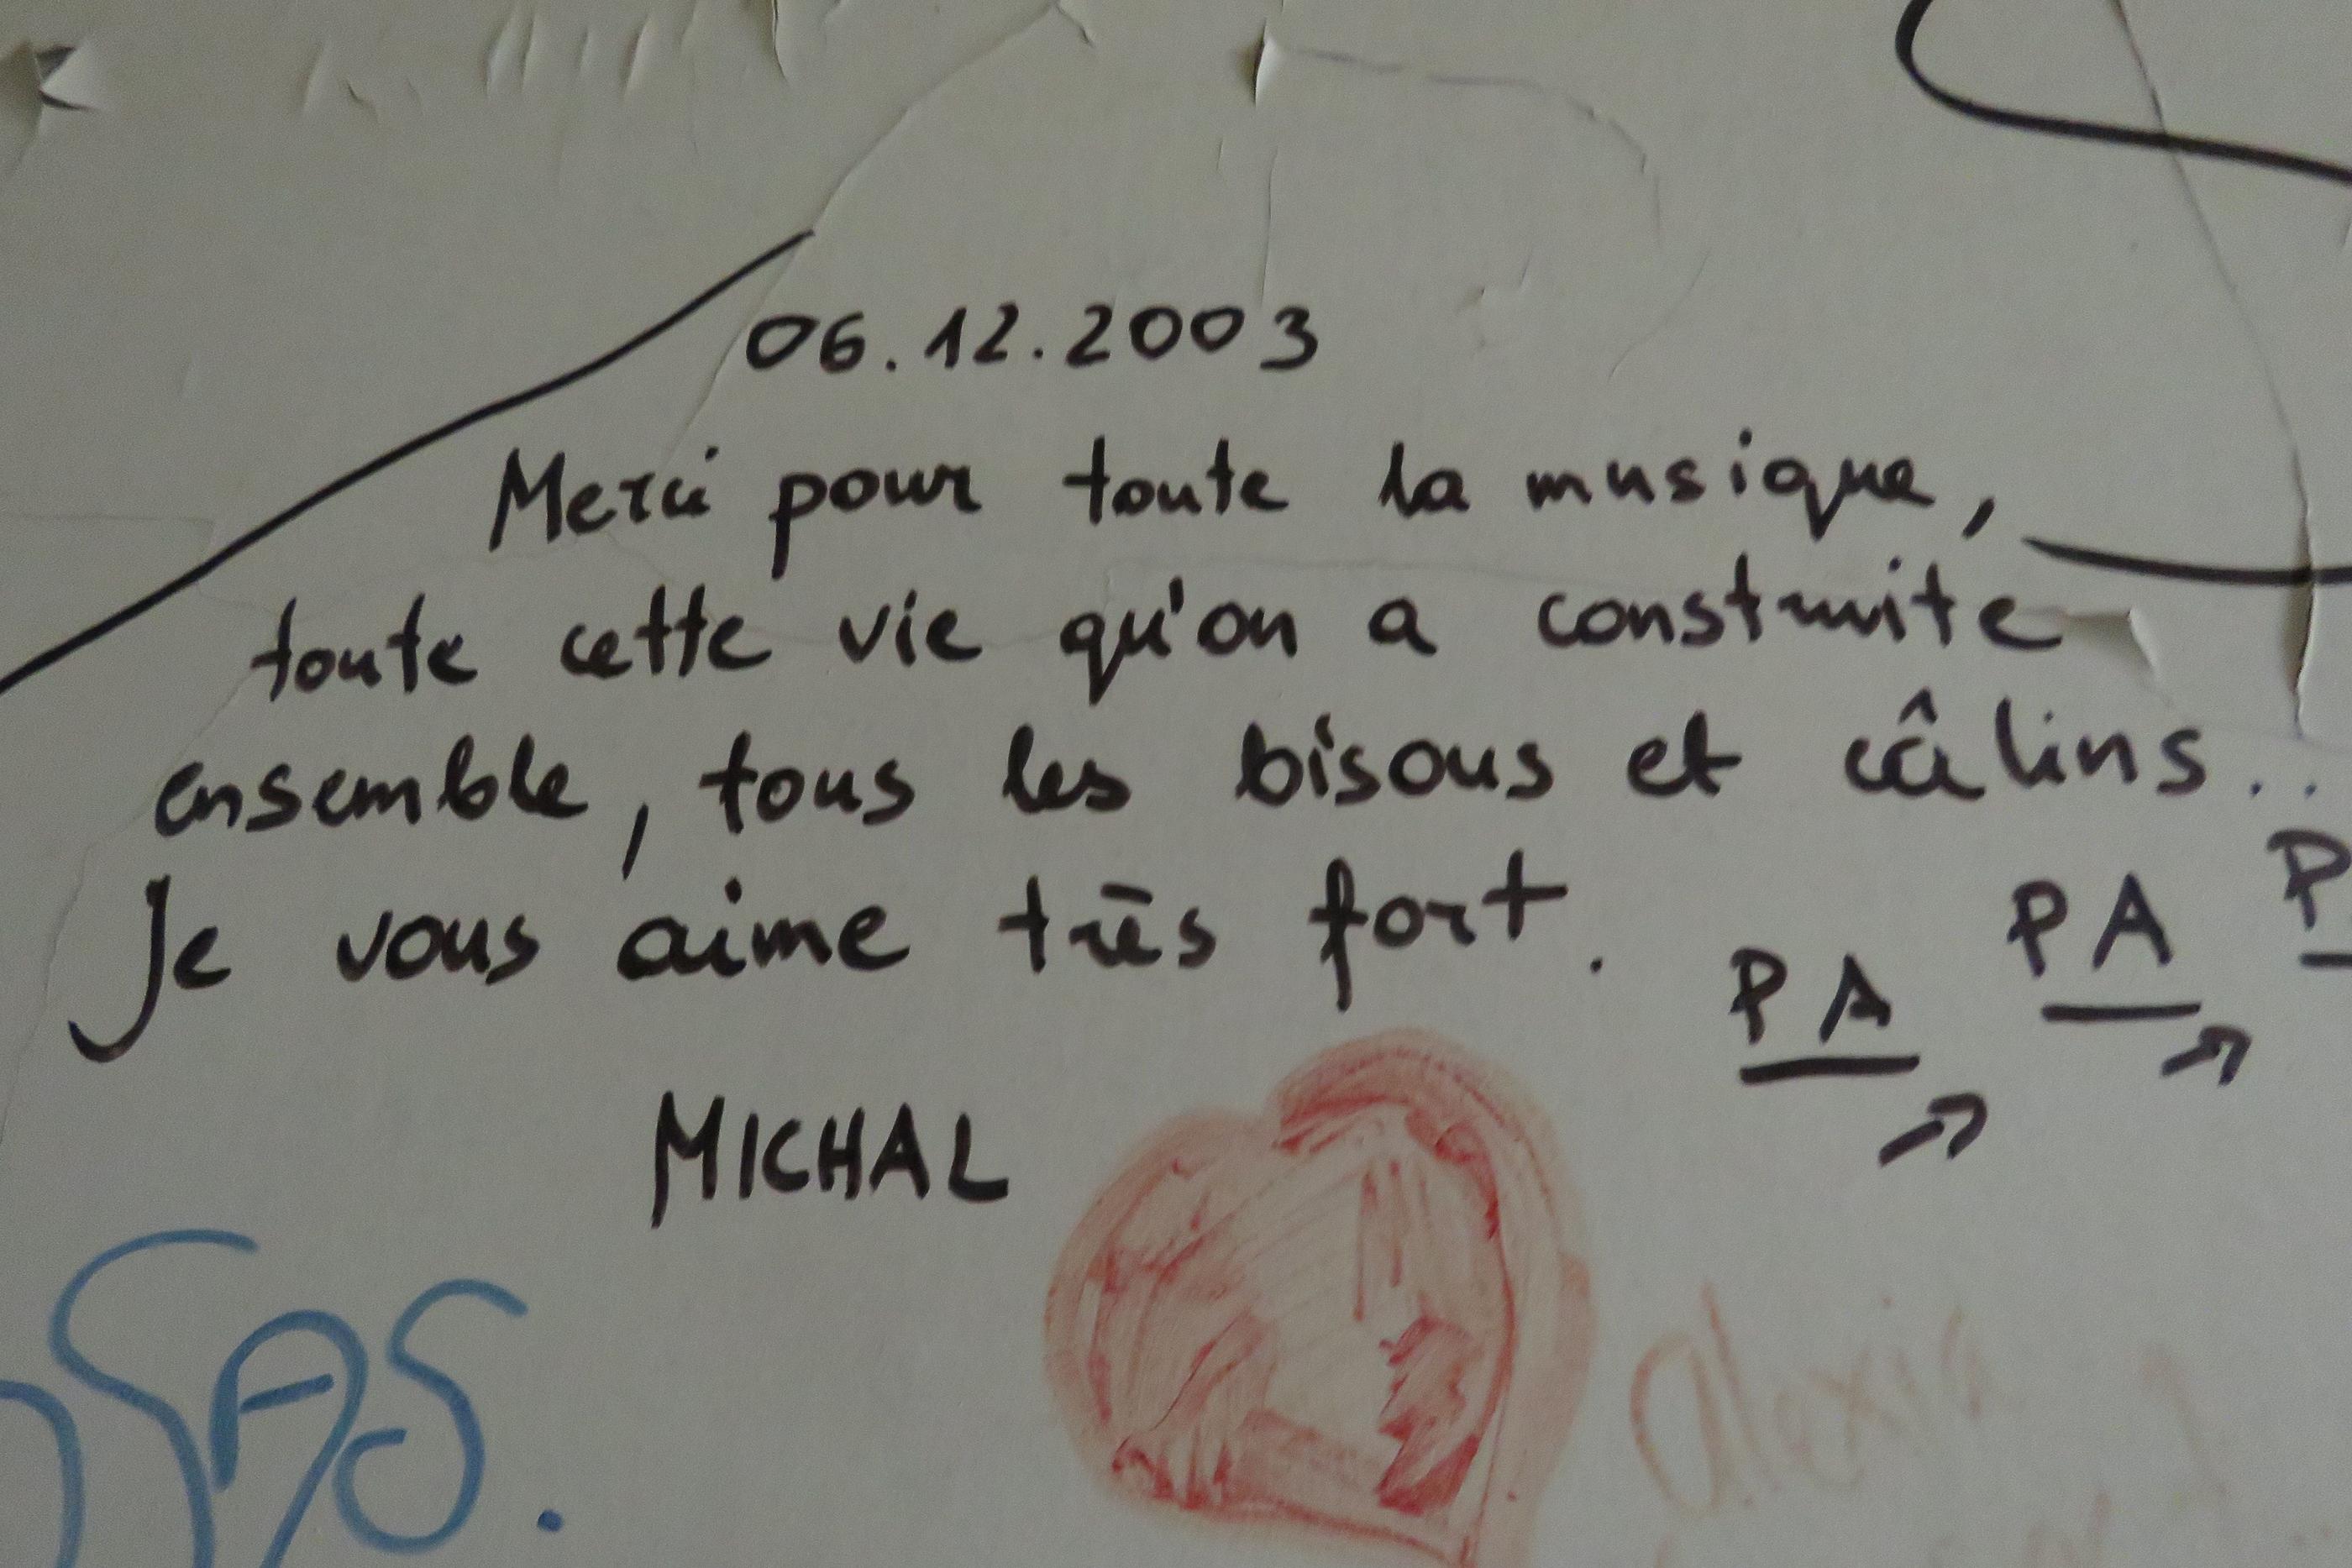 06.12.2003
Merci pour toute la musique,
toute cette vie qu'on a construite
ensemble, tous les bisous et câlins..
Je vous aime très fort.
PA PA P
MICHAL